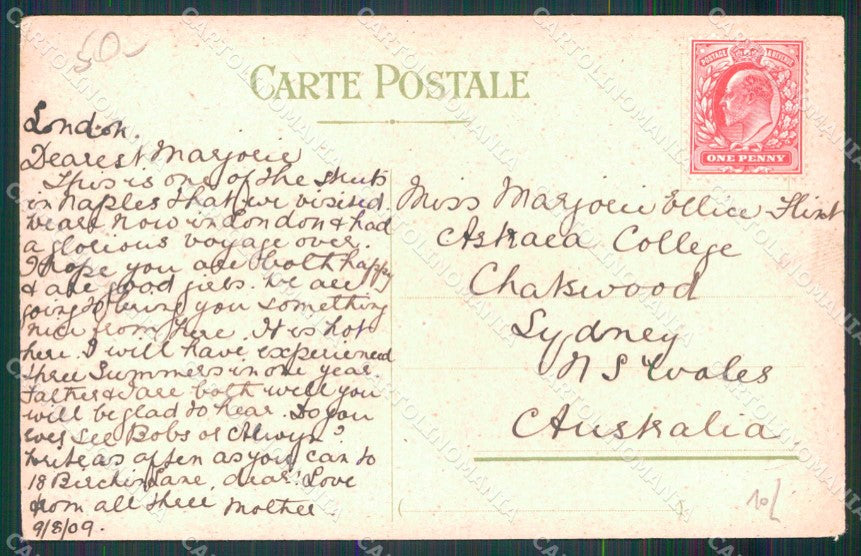 50-
CARTE POSTALE
POSTAGE & REVENUE
ONE PENNY
London.
Dearest Marjorie
This is one of the streets
in Naples that we visited.
We are now in London & had
a glorious voyage over.
I hope you are both happy
& are good girls. We are
going to bring you something
nice from here. It is hot
here. I will have experienced
three Summers in one year.
Father & I are both well you
will be glad to hear. Do you
ever see Bobs or Alwyn?
Write as often as you can to
18 Birchin Lane, dear. Love
from all three Mother
9/8/09.
Miss Marjorie Ellice Flint
Astraea College
Chatswood
Sydney
N S Wales
Australia
10/
CARTOLINOMANIA